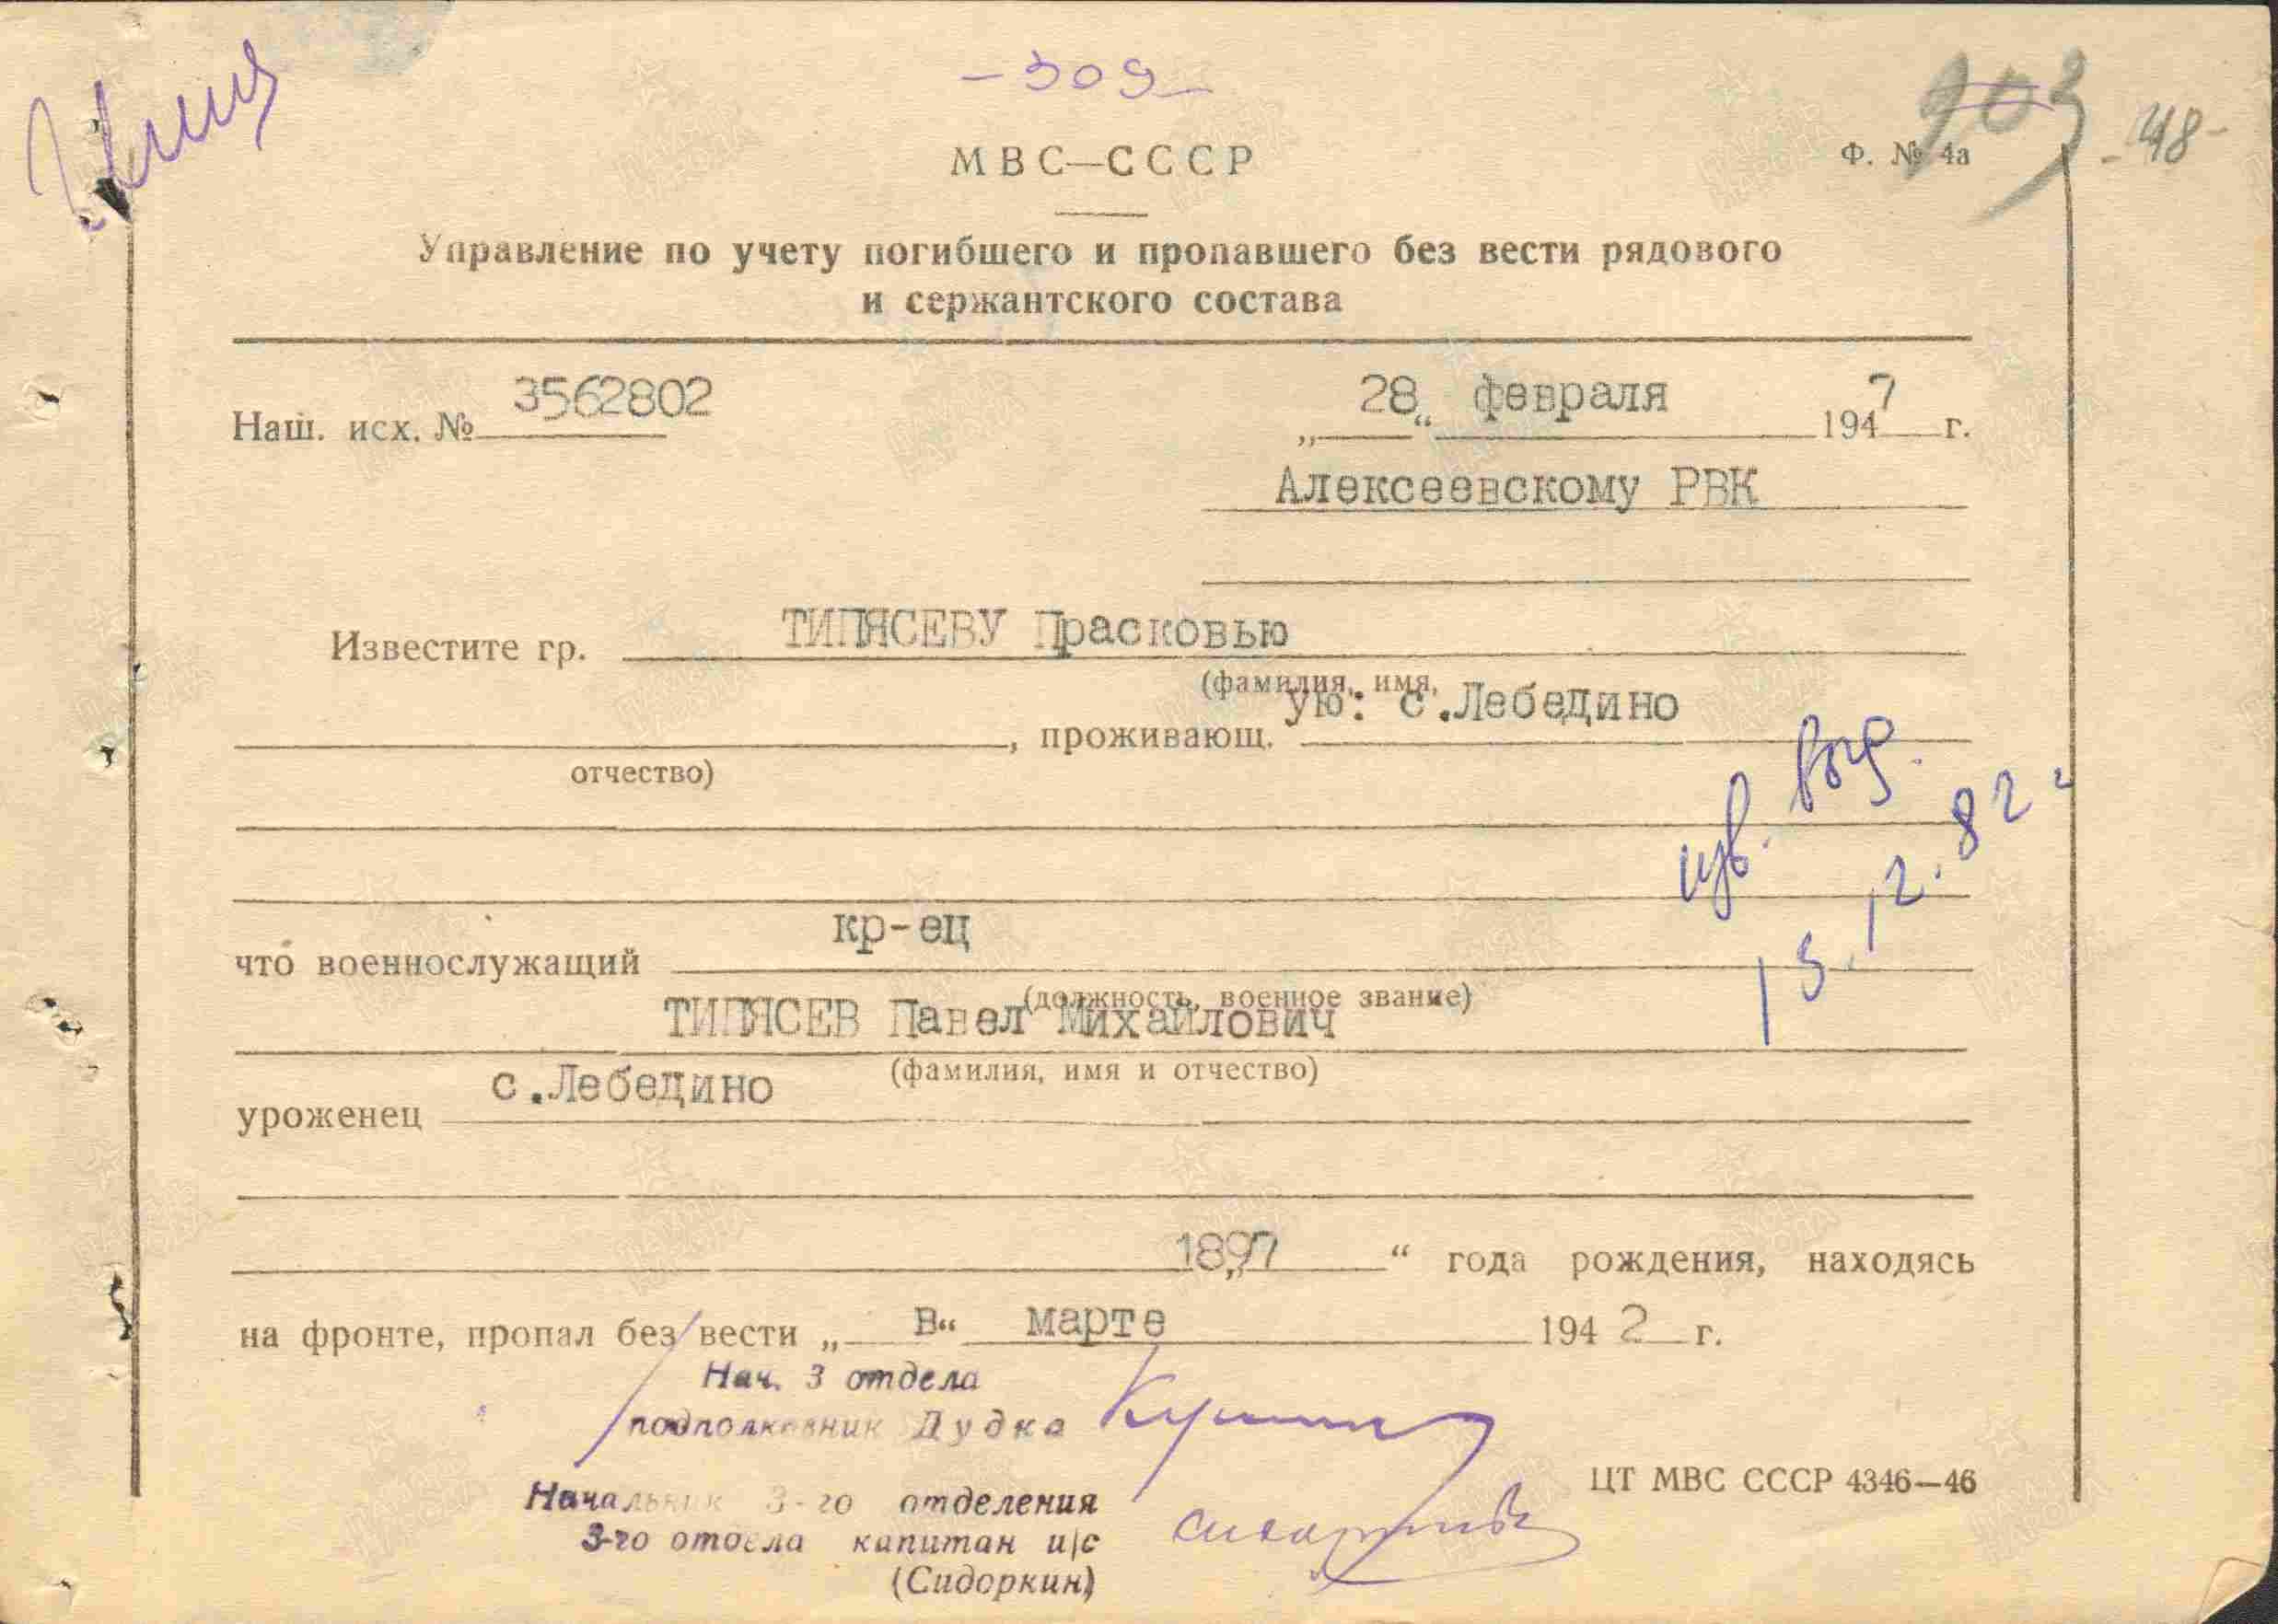 - 309 -
МВС—СССР
Ф. № 4а
903
- 48 -
Управление по учету погибшего и пропавшего без вести рядового
и сержантского состава
Наш. исх. № 3562802
„28“ февраля 1947 г.
Алексеевскому РВК
Известите гр. ТИПЯСЕВУ Прасковью
(фамилия, имя,
, проживающ. ую: с.Лебедино
отчество)
изв. выс.
15.12.82 г
что военнослужащий кр-ец
(должность, военное звание)
ТИПЯСЕВ Павел Михайлович
(фамилия, имя и отчество)
уроженец с.Лебедино
„1897“ года рождения, находясь
на фронте, пропал без вести „в“ марте 1942 г.
Нач. 3 отдела
подполковник Дудка
Начальник 3-го отделения
3-го отдела капитан и/с
(Сидоркин)
ЦТ МВС СССР 4346—46